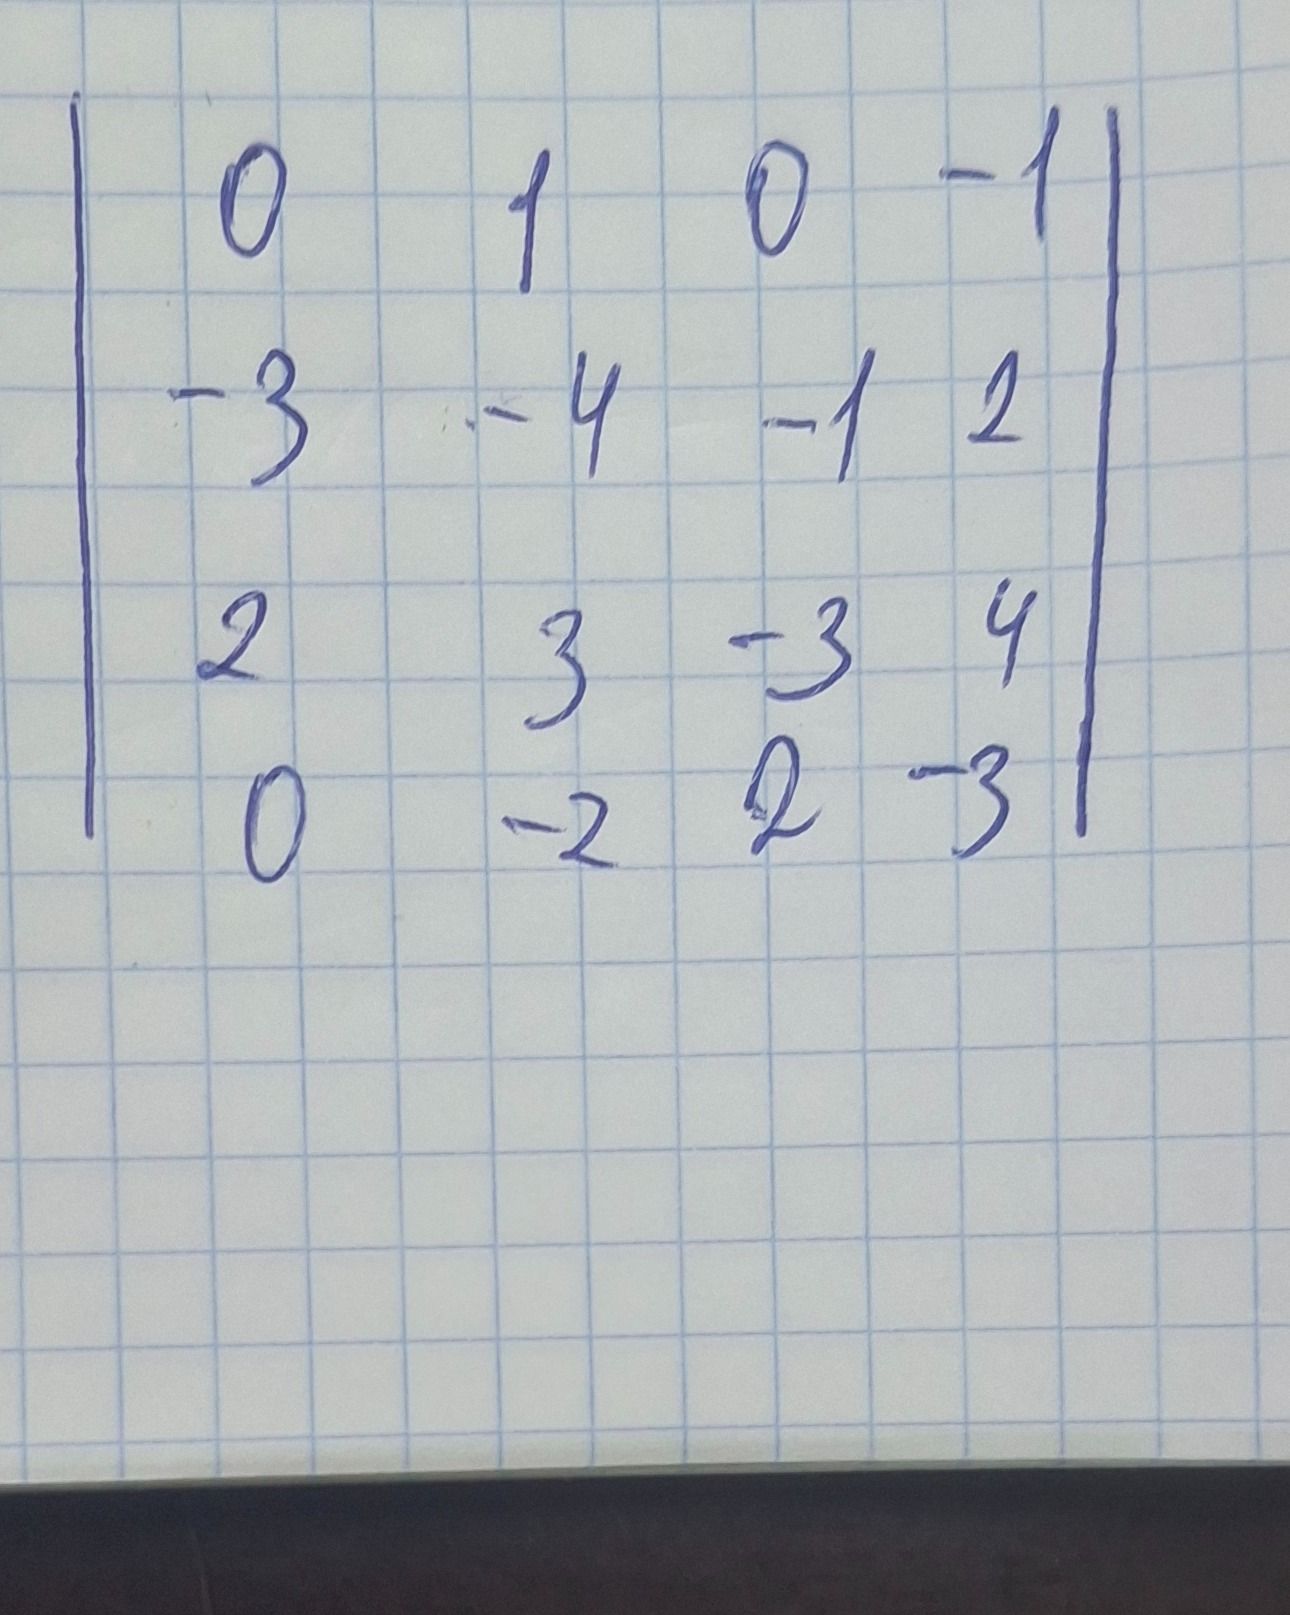 0 1 0 -1
-3 -4 -1 2
2 3 -3 4
0 -2 2 -3